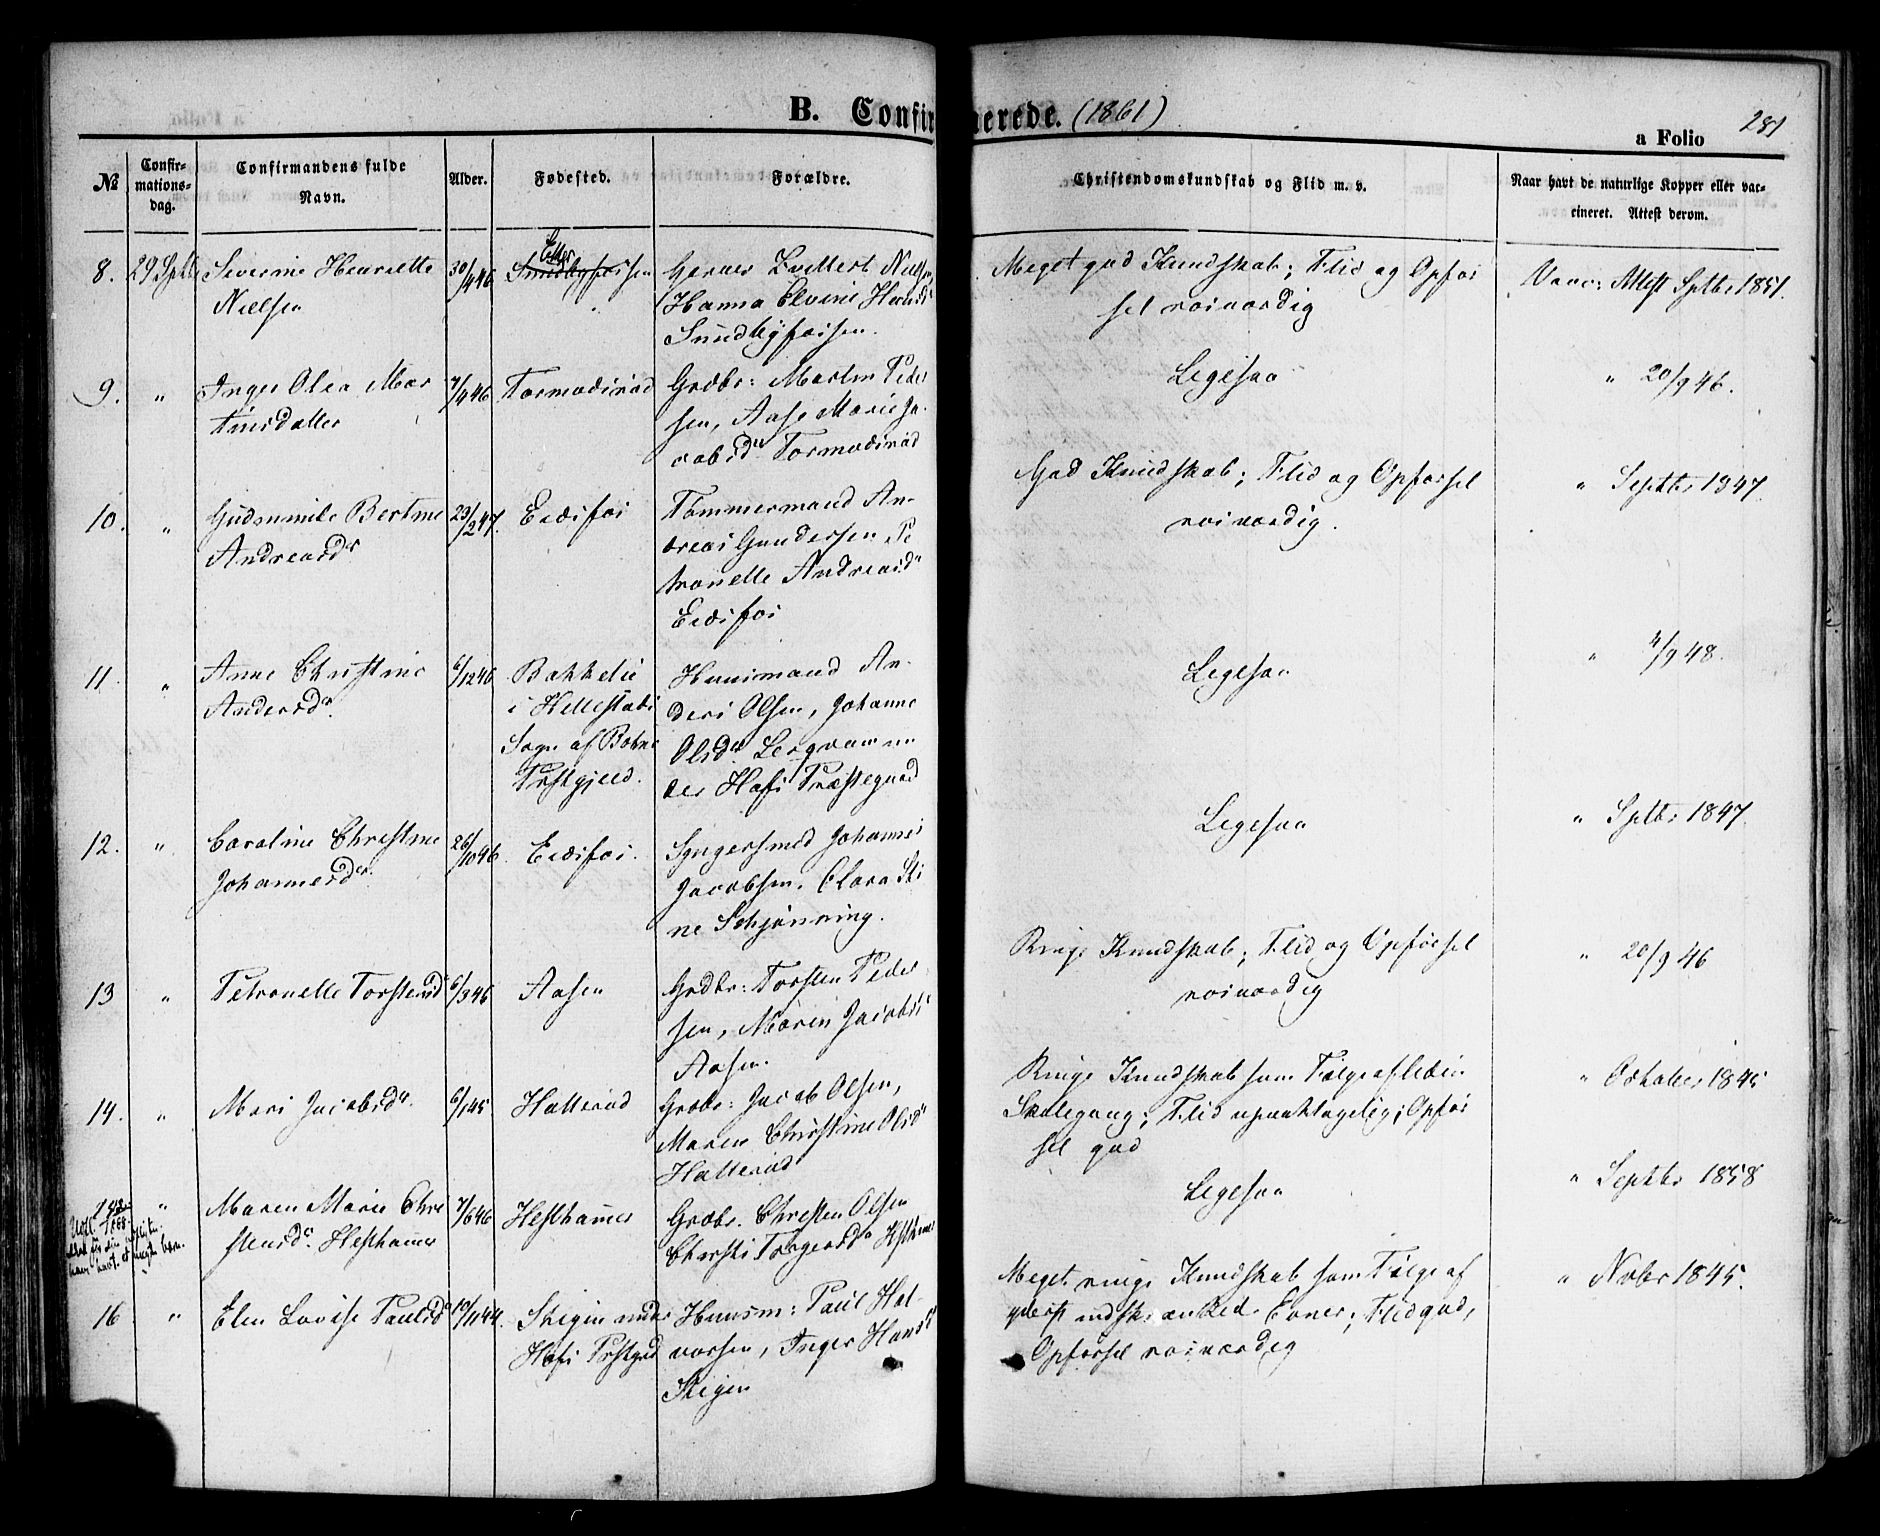 B. Confirmerede. (1861)
281
a Folio
№
Confir-
mations-
dag.
Confirmandens fulde
Navn.
Alder.
Fødested.
Forældre.
Christendomskundskab og Flid m. v.
Naar havt de naturlige Kopper eller vac-
cineret. Attest derom.
8.
29 Sptbr
Severine Henriette
Nielsen
30/4 46
Sundbyfossen
Garver Evillert Nielsen
Hanna Elvine Hansdr
Sundbyfossen.
Meget god Kundskab; Flid og Opfør
sel roisværdig
Vacc: Attest Sptbr 1851.
9.
"
Inger Olea Mar
tinsdatter
7/4 46
Tormodsrød
Grdbr: Martin Peder
sen, Aase Marie Ja-
cobsdr Tormodsrød
Ligesaa
" 20/9 46.
10.
"
Gudenmile Bertine
Andreasdr
23/2 47.
Eidsfos
Tømmermand An-
dreas Gundersen Pe
tronelle Andreasdr
Eidsfos
God Kundskab; Flid og Opførsel
roisværdig.
" Septbr 1847.
11.
"
Anne Christine
Andersdr.
6/12 46
Bakkelie
i Hellestads
Sogn af Botne
Prstgjeld.
Huusmand An-
ders Olsen, Johanne
Olsdr. Bergvam un
der Hofs Præstegaard
Ligesaa
" 4/9 48.
12.
"
Caroline Christine
Johannesdr.
26/10 46.
Eidsfos.
Spigersmed Johannes
Jacobsen. Clara Sti
ne Schjønning.
Ligesaa
" Sptbr 1847.
13
"
Petronelle Torstensdr
6/3 46
Aasen
Grdbr: Torsten Peder
sen, Maren Jacobsdr
Aasen.
Ringe Kundskab; Flid og Opførsel
roisværdig
" 20/9 46
14.
"
Mari Jacobsdr.
6/1 45
Hallerød
Grdbr: Jacob Olsen,
Maren Christine Olsdr
Hallerød
Ringe Kundskab som Følge af liden
Skolegang; Flid upaaklagelig; Opfør
sel god
" October 1845
"
Maren Marie Chri
stensdr. Hesthamer
7/6 46
Hesthamer
Grdbr. Christen Olsen
Christi Torgersdr Hesthamer
Ligesaa
" Septbr 1858
16
"
Elen Lovise Paulsdr
10/11 44.
Skigen under
Hofs Prstgrd
Huusm: Paul Hal-
vorsen, Inger Hansdr
Skigen
Meget ringe Kundskab som Følge af
yderst indskrænkede Evner; Flid god,
Opførsel roisværdig
" Novbr 1845.